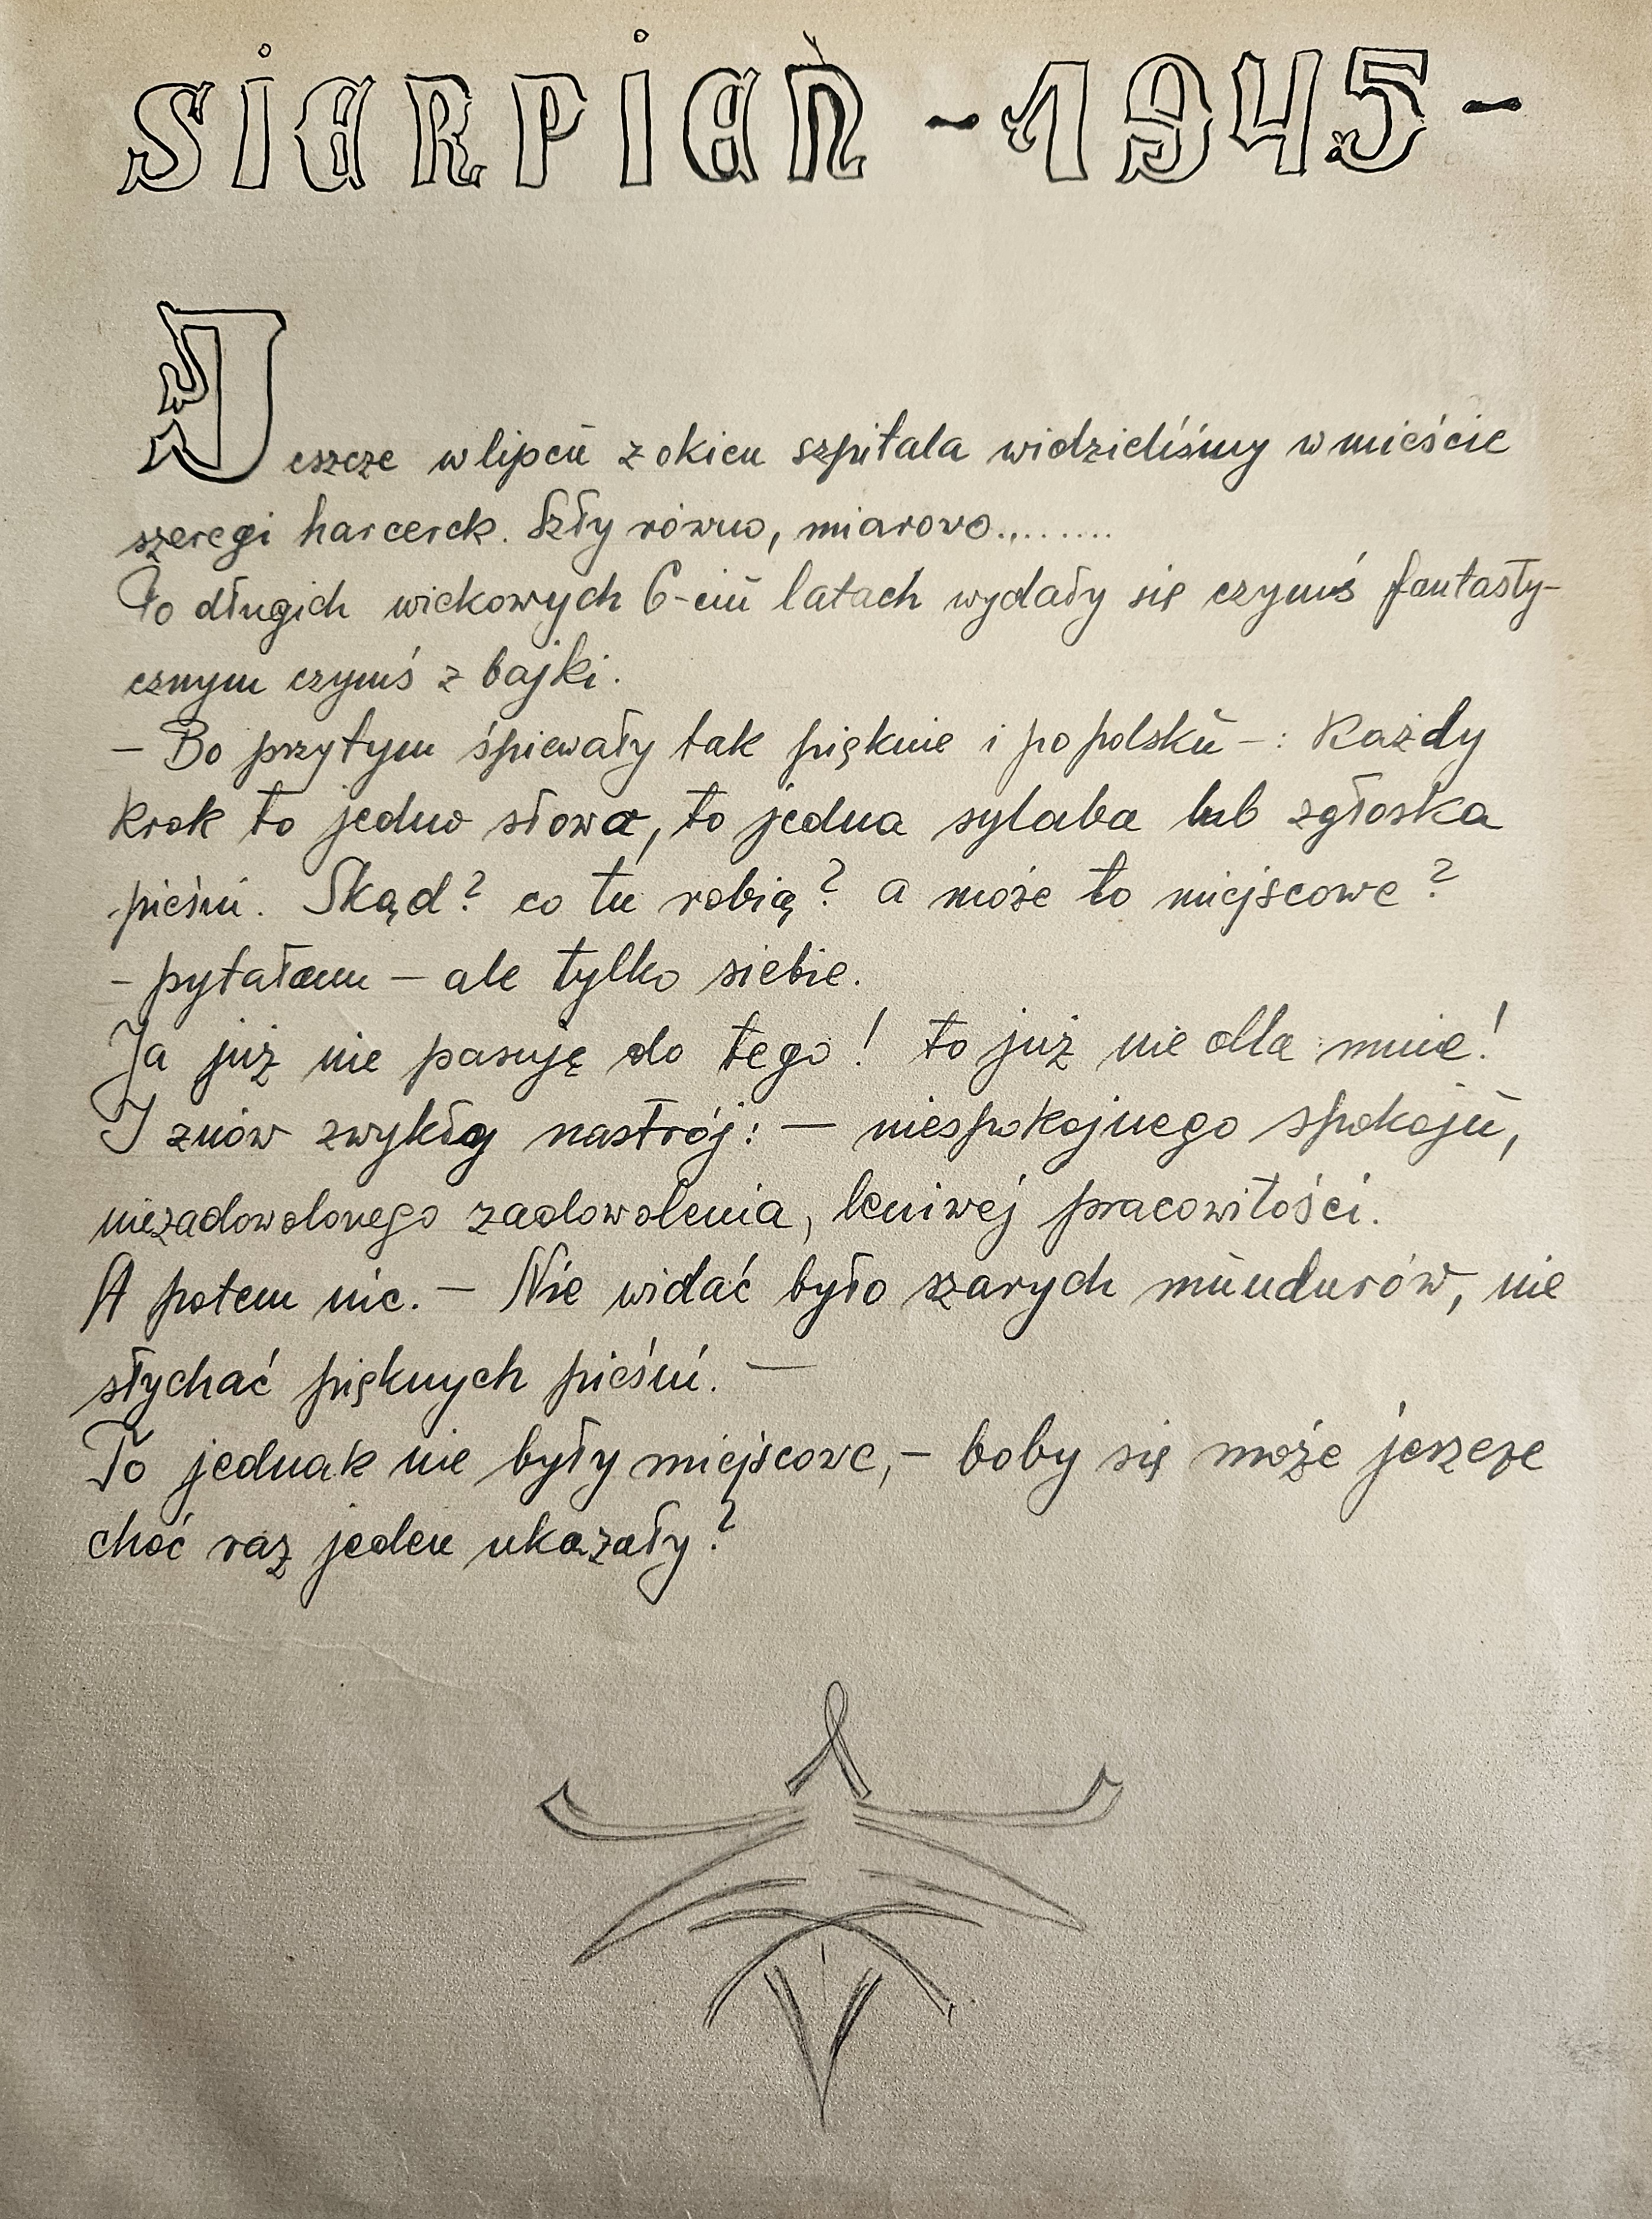 SIERPIEŃ - 1945 -
Jeszcze w lipcu z okien szpitala widzieliśmy w mieście
szeregi harcerek. Szły równo, miarowo.........
Po długich wiekowych 6-ciu latach wydały się czymś fantasty-
cznym czymś z bajki.
- Bo przytym śpiewały tak pięknie i po polsku -: Każdy
krok to jedno słowo, to jedna sylaba lub zgłoska
pieśni. Skąd? co tu robią? a może to miejscowe?
- pytałam - ale tylko siebie.
Ja już nie pasuję do tego! to już nie dla mnie!
I znów zwykły nastrój: - niespokojnego spokoju,
niezadowolonego zadowolenia, leniwej pracowitości.
A potem nic. - Nie widać było szarych mundurów, nie
słychać pięknych pieśni. -
To jednak nie były miejscowe, - boby się może jeszcze
choć raz jeden ukazały?